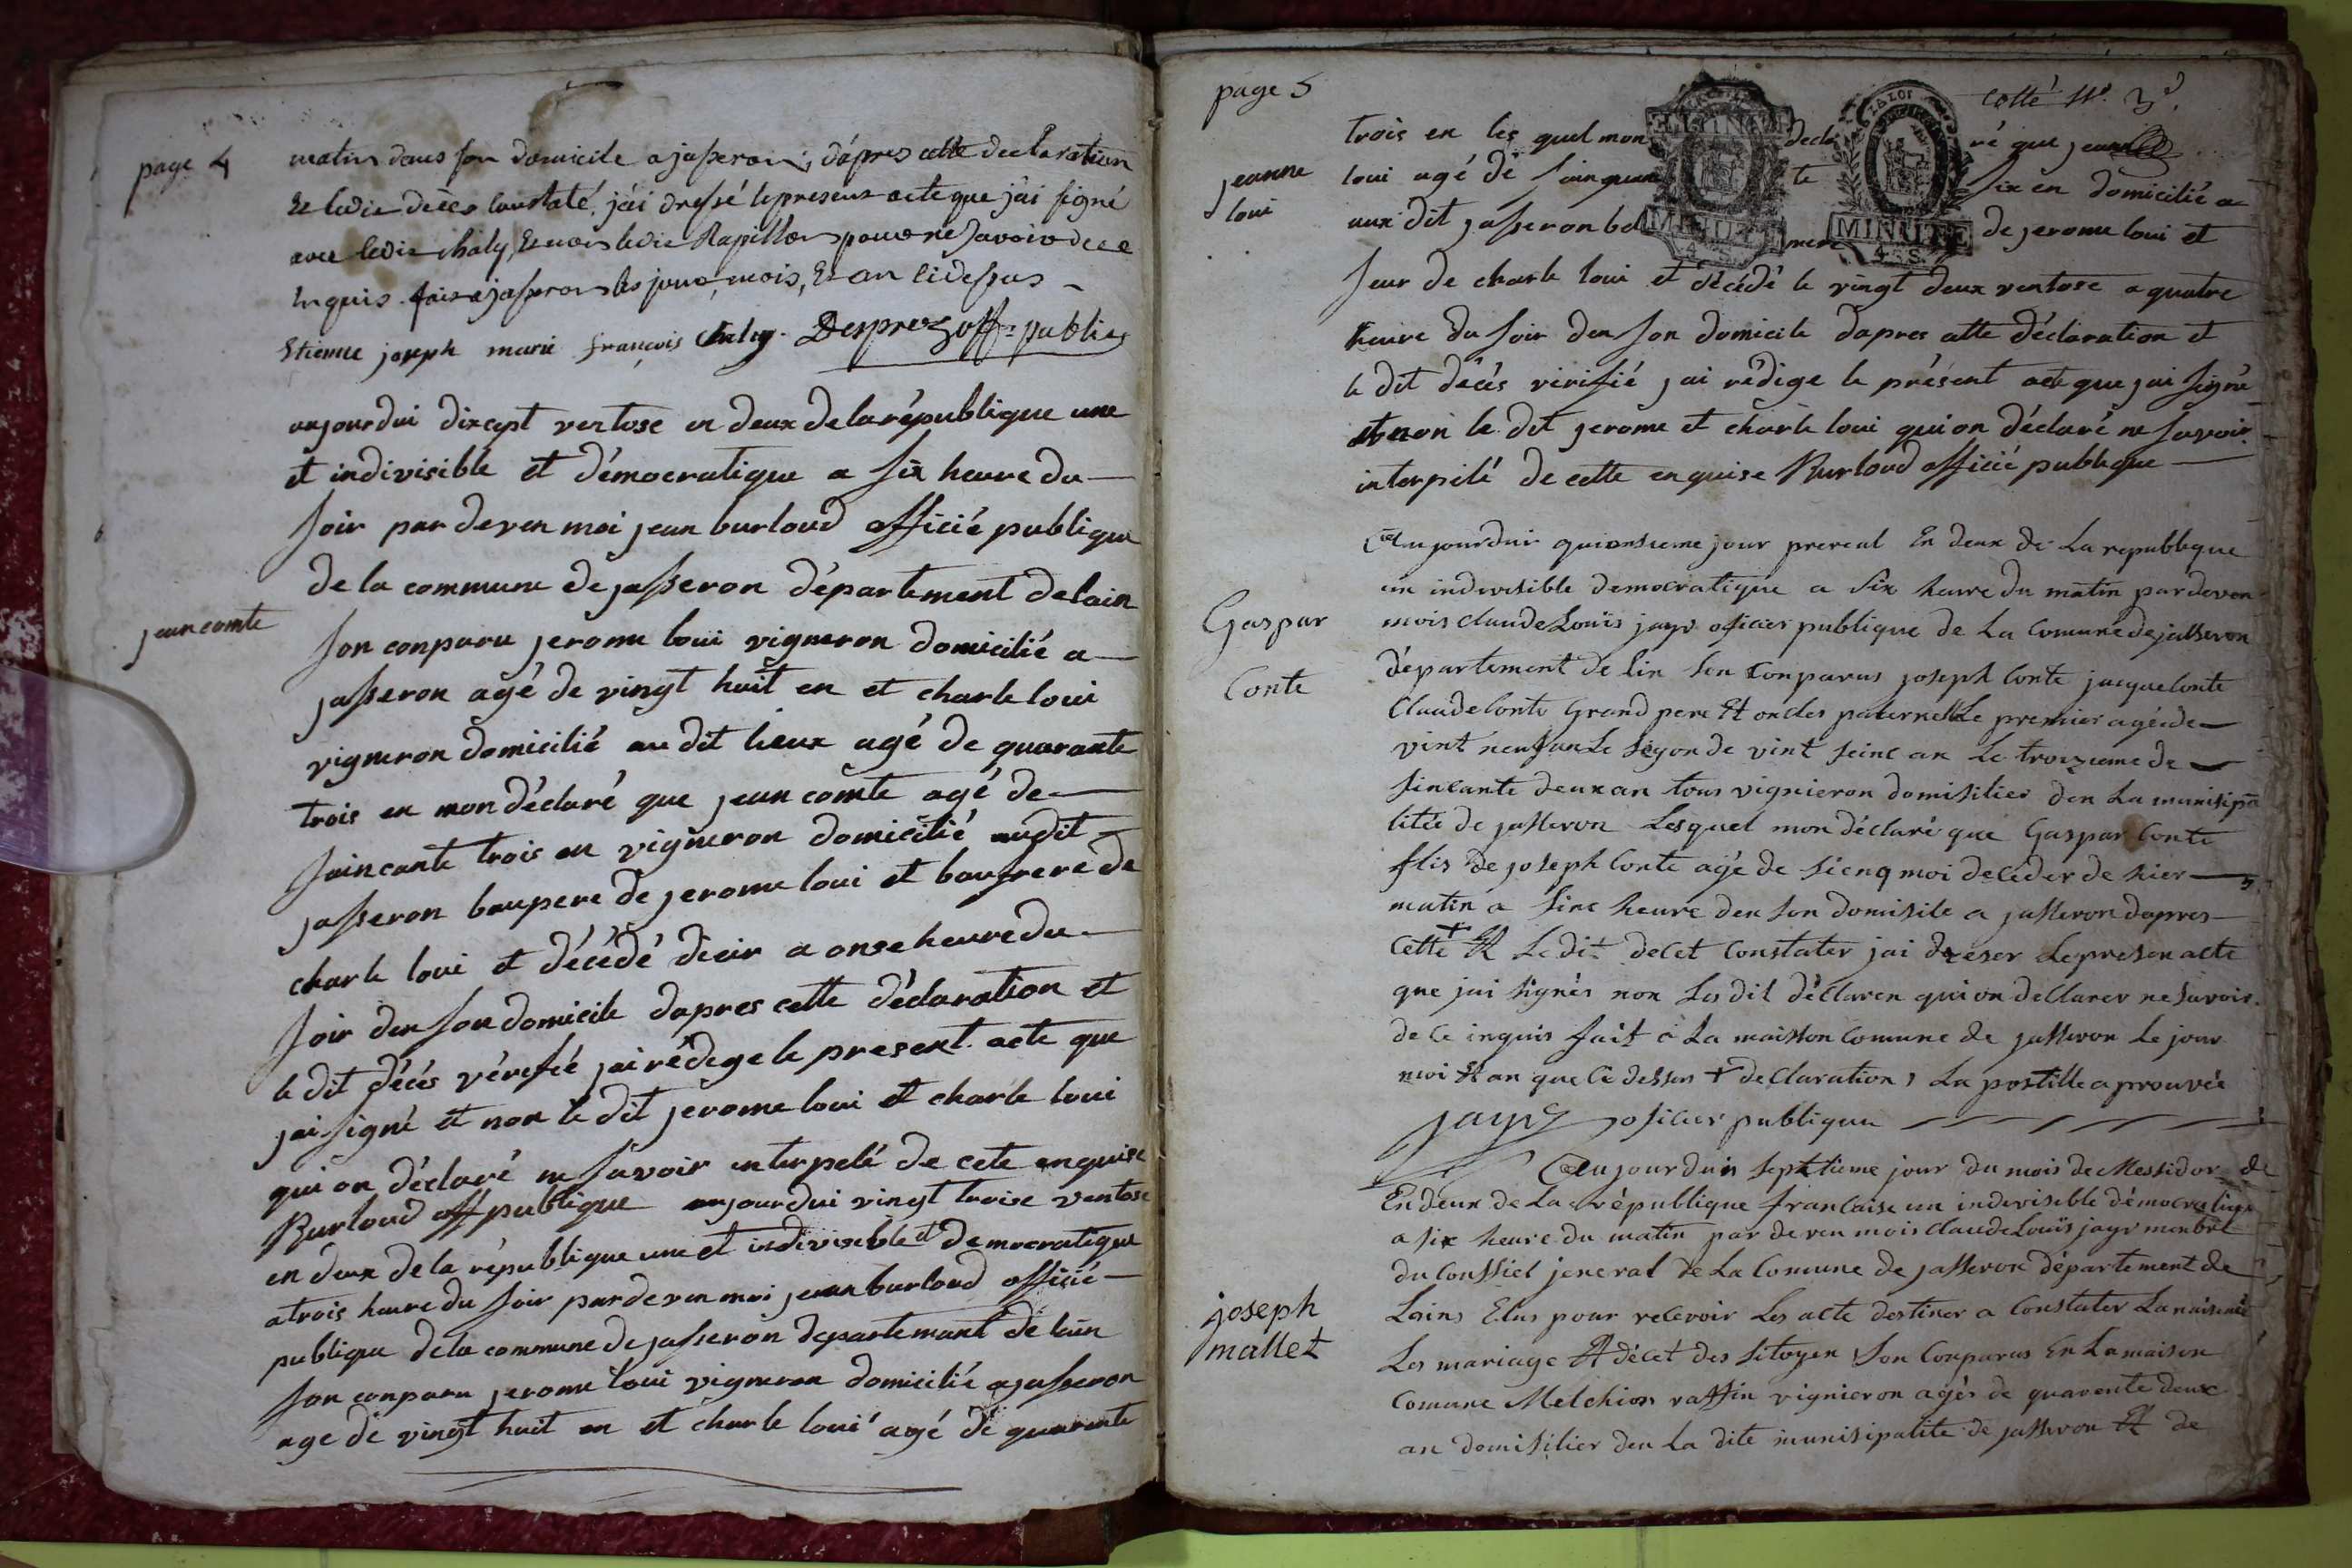 page 4
matin dans son domicile a jasseron, d'apres cette declaration
Et ledit décès constaté, j'ai dressé le present acte que j'ai signé
avec ledit chaly, Et non ledit Rapillon pour ne savoir de ce
Enquis. fait a jasseron les jour, mois, Et an ci dessus
Etienne joseph marie françois Chaly. Desprez off. public
aujourdui disept ventose en deux de la république une
et indivisible et démocratique a six heure du
soir par deven moi jean burloud officié publique
de la commune de jasseron département de lain
jean comte
son conparu jerome loui vigneron domicilié a
jasseron agé de vingt huit en et charle loui
vigneron domicilié au dit lieux agé de quarante
trois en mon déclaré que jean comte agé de
soincante trois en vigneron domicilié audit
jasseron baupere de jerome loui et baufrere de
charle loui et décédé dieir a onse heure du
soir den son domicile dapres cette déclaration et
le dit décés vérefié jai rédege le present acte que
jai signé et non le dit jerome loui et charle loui
qui on déclaré ne savoir interpelé de cete enquise
Burloud off publique aujourdui vingt troise ventose
en deux de la république une et indivisible et democratique
a trois heure du soir par deven moi jean burloud officié
publique de la commune de jasseron departemant de lain
son conparu jerome loui vigneron domicilié a jasseron
age de vingt huit en et charle loui agé de quarante
page 5
cotté
trois en les quel mon decla ré que jeanne
jeanne
loui
loui agé de soinquante six en domicilié a
aux dit jasseron bel mere de jerome loui et
seur de charle loui et décédé le vingt deux ventose a quatre
heure du soir den son domicile dapres cette déclaration et
le dit décés virifié jai rédige le présent acte que jai signé
et non le dit jerome et charle loui qui on déclaré ne savoir
interpelé de cette enquise Burloud officié publique
Aujourdui quiensieme jour prereal En deux de La republique
un indivisible democratique a six heure du matin par deven
Gaspar
Conte
mois claude Louis jayr oficier publique de La Comune de jasseron
département de lin Son Conparus joseph Conte jacque Conte
Claude Conte Grand pere Et oncles paternelle Le premier agé de
vint neuf an Le segonde vint seinc an Le troizieme de
sincante deux an tous vignieron domisilier den La munisipa
litée de jasseron Lesquel mon déclaré que Gaspar Conte
flis de joseph Conte agé de sienq moi deceder de hier
matin a sinc heure den son domisile a jasseron dapres
Cette + Et Le dit decet Constater jai dreser Le presen acte
que jai signés non Les dit déClaren qui on deClarer ne savoir
de Ce inquis fait a La maisson Comune de jasseron Le jour
moi Et an que Ci dessus + deClaration, La postille aprouvée
jayr oficier publique
Aujourduis septtieme jour du mois de Messidor de
En deux de La république francaise un indevisible démocratique
a six heure du matin par deven mois claude Louis jayr menbre
du Conssiel jeneral de La Comune de jasseron département de
joseph
mallet
Lains Elus pour recevoir Les acte destiner a Constater La naisence
Les mariage Et décet des sitoyen Son Conparus En La maison
Comune Melchior raffin vignieron agés de quarente deux
an domisilier den La dite munisipalité de jasseron Et de